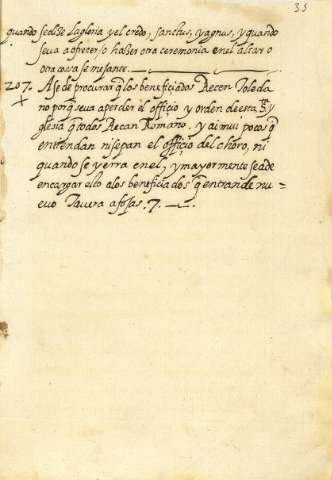 35
quando se dize La gloria y el credo, sanctus, y agnus, y quando
se va a ofrecer, o hazer otra ceremonia en el altar o
otra cosa semejante.
207. Asse de procurar q̃ los beneficiados Recen Toleda
no porq̃ se va a perder el officio y orden de esta
yglesia q̃ todos Recan Romano. y ai mui pocos q̃
entiendan ni sepan el officio del choro, ni
quando se yerra en el, y mayormente se a de
encargar esto a los beneficiados q̃ entran de nu-
evo Tavera a fojas. 7.